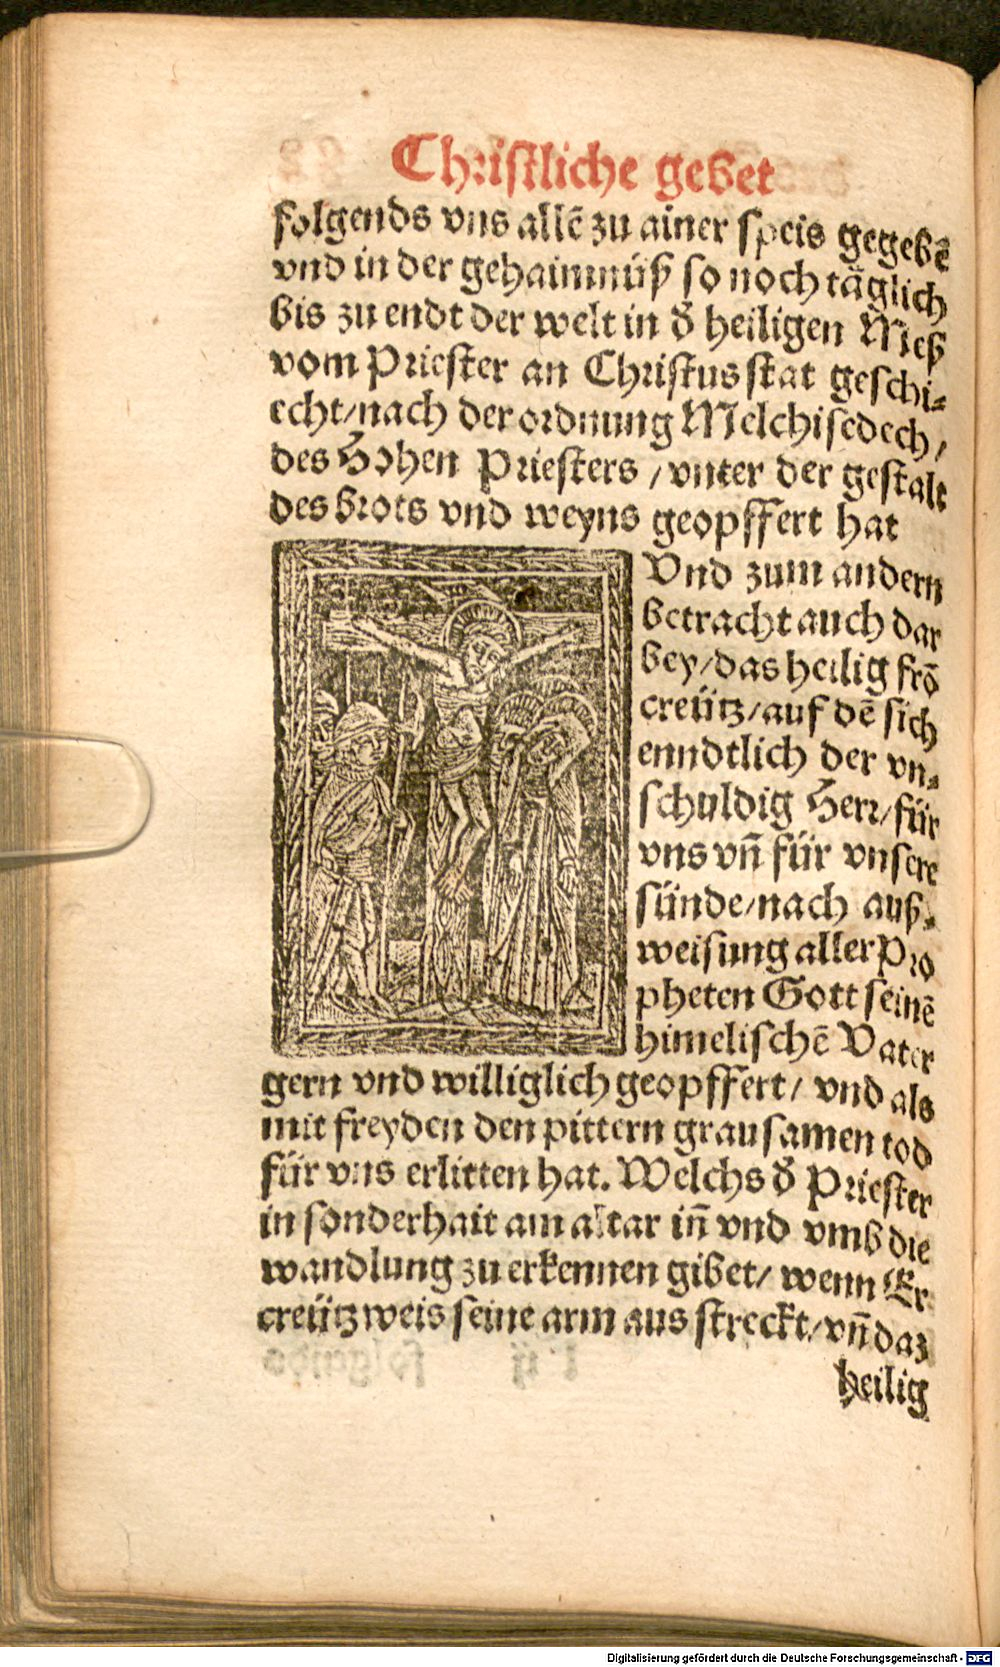 Christliche gebet
folgends vns allē zu ainer speis gegebē
vnd in der gehaimnüß so noch täglich
bis zu endt der welt in d̕ heiligen Meß
vom Priester an Christus stat geschi⸗
echt/nach der ordnung Melchisedech/
des Hohen Priesters/vnter der gestalt
des brots vnd weyns geopffert hat
Vnd zum andern
betracht auch dar
bey/das heilig frō
creütz/auf dē sich
enndtlich der vn⸗
schuldig Herr/für
vns vn̄ für vnsere
sünde/nach auß⸗
weisung aller Pro
pheten Gott seinē
himelischē Vater
gern vnd williglich geopffert/ vnd als
mit freyden den pittern grausamen tod
für vns erlitten hat. Welchs d̕ Priester
in sonderhait am altar in̄ vnd vmb die
wandlung zu erkennen gibet/ wenn Er
creützweis seine arm aus streckt/vn̄ daz
heilig
Digitalisierung gefördert durch die Deutsche Forschungsgemeinschaft - DFG